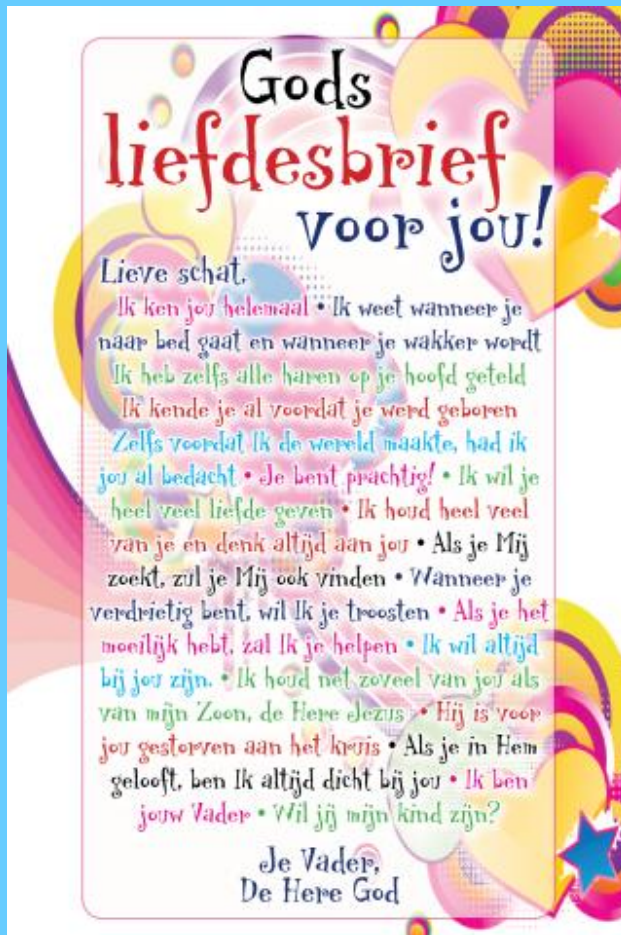 Gods
liefdesbrief
voor jou!
Lieve schat,
Ik ken jou helemaal • Ik weet wanneer je
naar bed gaat en wanneer je wakker wordt
Ik heb zelfs alle haren op je hoofd geteld
Ik kende je al voordat je werd geboren
Zelfs voordat Ik de wereld maakte, had ik
jou al bedacht • Je bent prachtig! • Ik wil je
heel veel liefde geven • Ik houd heel veel
van je en denk altijd aan jou • Als je Mij
zoekt, zul je Mij ook vinden • Wanneer je
verdrietig bent, wil Ik je troosten • Als je het
moeilijk hebt, zal Ik je helpen • Ik wil altijd
bij jou zijn. • Ik houd net zoveel van jou als
van mijn Zoon, de Here Jezus • Hij is voor
jou gestorven aan het kruis • Als je in Hem
gelooft, ben Ik altijd dicht bij jou • Ik ben
jouw Vader • Wil jij mijn kind zijn?
Je Vader,
De Here God